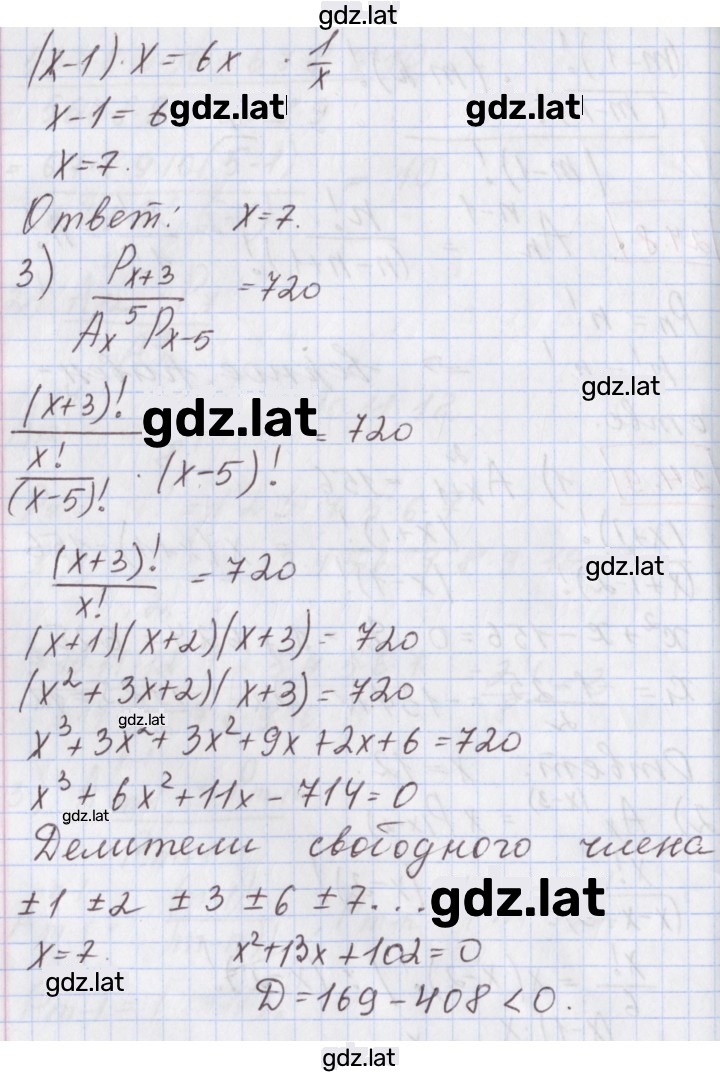 gdz.lat
(x-1)·x = 6x · 1/x
x-1 = 6 gdz.lat gdz.lat
x = 7.
Ответ: x = 7.
3) P_{x+3} / (A_x^5 P_{x-5}) = 720
gdz.lat
(x+3)! / (x!/(x-5)! · (x-5)!) = 720
gdz.lat
(x+3)! / x! = 720
gdz.lat
(x+1)(x+2)(x+3) = 720
(x² + 3x+2)(x+3) = 720
gdz.lat
x³ + 3x² + 3x² + 9x + 2x + 6 = 720
x³ + 6x² + 11x - 714 = 0
gdz.lat
Делители свободного члена
±1 ±2 ±3 ±6 ±7... gdz.lat
x = 7. x² + 13x + 102 = 0
gdz.lat
D = 169 - 408 < 0.
gdz.lat